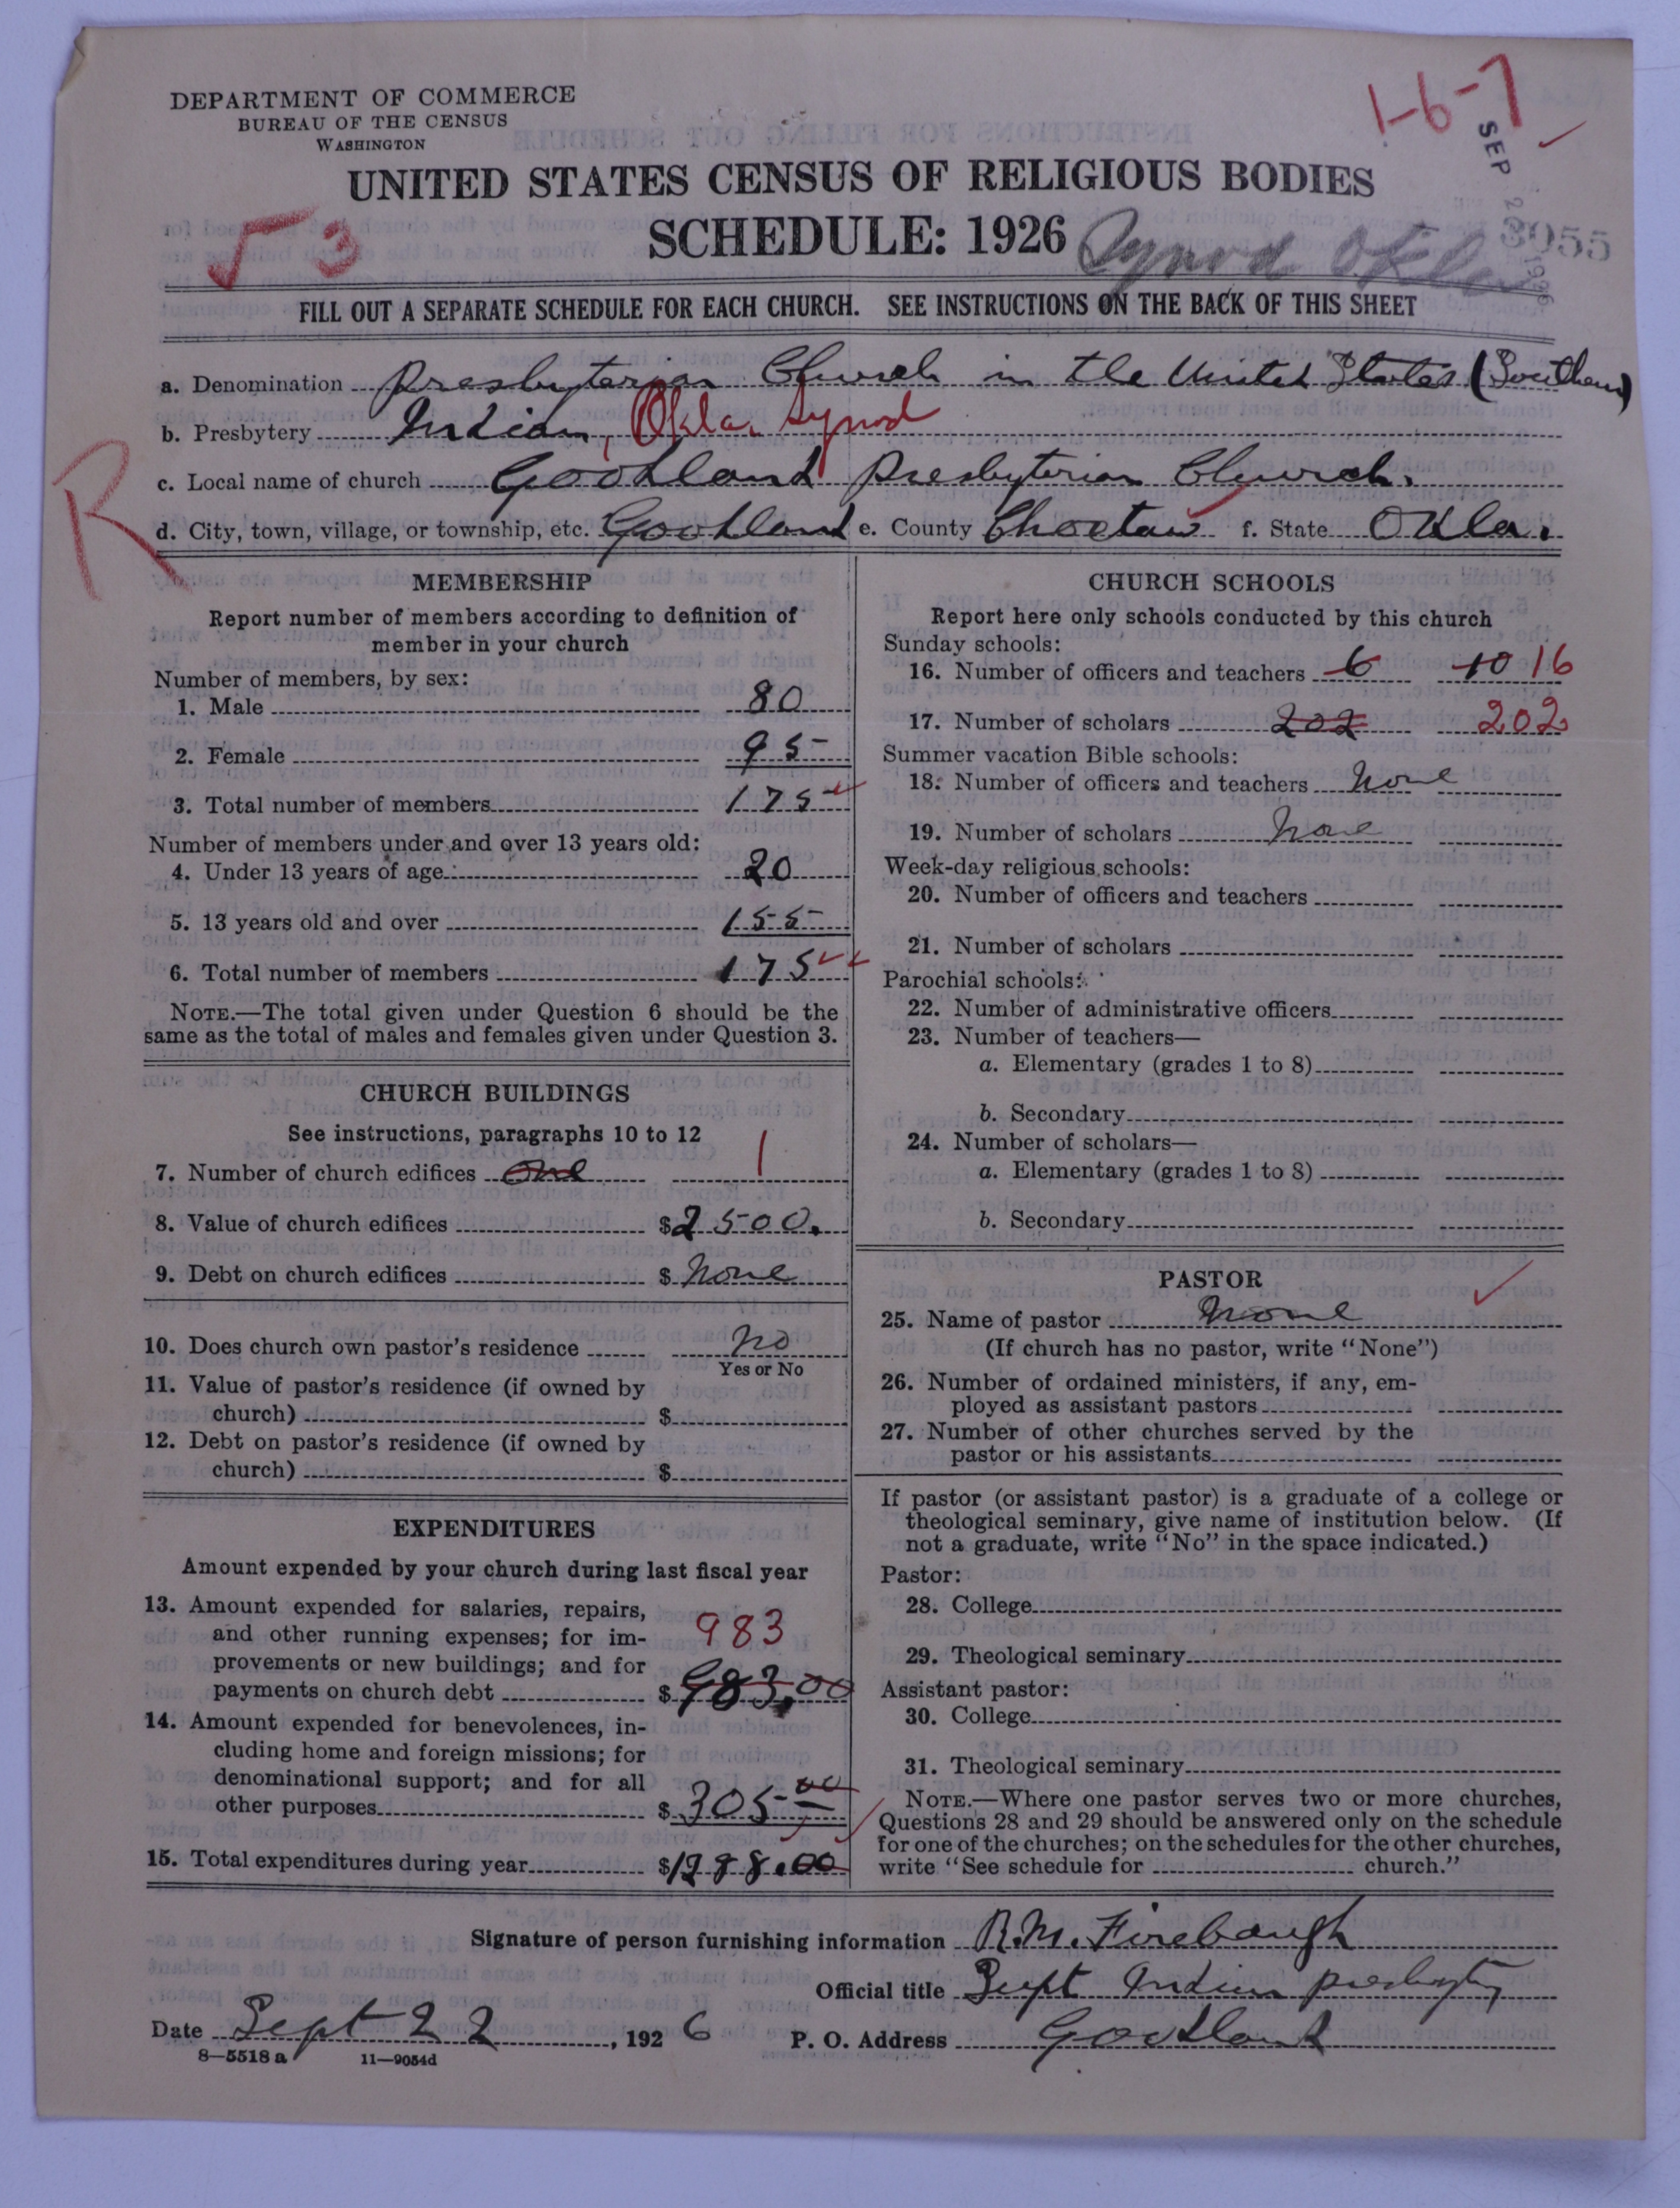 DEPARTMENT OF COMMERCE
BUREAU OF THE CENSUS
WASHINGTON
1-6-7
SEP 2 1926
UNITED STATES CENSUS OF RELIGIOUS BODIES
SCHEDULE: 1926
Synod Okla
3055
3
FILL OUT A SEPARATE SCHEDULE FOR EACH CHURCH. SEE INSTRUCTIONS ON THE BACK OF THIS SHEET
a. Denomination Presbyterian Church in the United States (Southern)
b. Presbytery Indian, Okla. Synod
c. Local name of church Goodland Presbyterian Church.
R
d. City, town, village, or township, etc. Goodland e. County Choctaw f. State Okla.
MEMBERSHIP
Report number of members according to definition of
member in your church
Number of members, by sex:
1. Male 80
2. Female 95
3. Total number of members 175
Number of members under and over 13 years old:
4. Under 13 years of age 20
5. 13 years old and over 155
6. Total number of members 175
NOTE.—The total given under Question 6 should be the
same as the total of males and females given under Question 3.
CHURCH BUILDINGS
See instructions, paragraphs 10 to 12
7. Number of church edifices One 1
8. Value of church edifices $2500.
9. Debt on church edifices $ None
10. Does church own pastor's residence No
Yes or No
11. Value of pastor's residence (if owned by
church) $
12. Debt on pastor's residence (if owned by
church) $
EXPENDITURES
Amount expended by your church during last fiscal year
13. Amount expended for salaries, repairs,
and other running expenses; for im-
provements or new buildings; and for
payments on church debt $ 983.00
983
14. Amount expended for benevolences, in-
cluding home and foreign missions; for
denominational support; and for all
other purposes $ 305 00
15. Total expenditures during year $1288.00
CHURCH SCHOOLS
Report here only schools conducted by this church
Sunday schools:
16. Number of officers and teachers 6 10 16
17. Number of scholars 202 202
Summer vacation Bible schools:
18. Number of officers and teachers None
19. Number of scholars None
Week-day religious schools:
20. Number of officers and teachers
21. Number of scholars
Parochial schools:
22. Number of administrative officers
23. Number of teachers—
a. Elementary (grades 1 to 8)
b. Secondary
24. Number of scholars—
a. Elementary (grades 1 to 8)
b. Secondary
PASTOR
25. Name of pastor None
(If church has no pastor, write "None")
26. Number of ordained ministers, if any, em-
ployed as assistant pastors
27. Number of other churches served by the
pastor or his assistants
If pastor (or assistant pastor) is a graduate of a college or
theological seminary, give name of institution below. (If
not a graduate, write "No" in the space indicated.)
Pastor:
28. College
29. Theological seminary
Assistant pastor:
30. College
31. Theological seminary
NOTE.—Where one pastor serves two or more churches,
Questions 28 and 29 should be answered only on the schedule
for one of the churches; on the schedules for the other churches,
write "See schedule for church."
Signature of person furnishing information R.M. Firebaugh
Official title Supt Indian presbytery
Date Sept 22, 1926 P. O. Address Goodland
8—5518 a 11—9054d